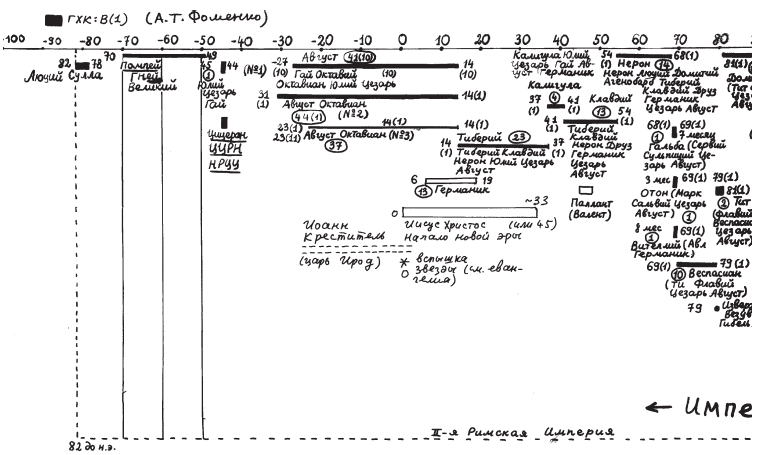 ГХК: В(1) (А.Т. Фоменко)
-100 -90 -80 -70 -60 -50 -40 -30 -20 -10 0 10 20 30 40 50 60 70 80
82 78
Люций Сулла
70 49
Помпей
Гней
Великий
45
(1)
Юлий
Цезарь
Гай
44 (№1)
Цицерон
ЦЦРН
НРЦЦ
-27
(10)
Август 41(10)
14
(10)
Гай Октавий (10)
Октавиан Юлий Цезарь
31
(1)
14(1)
Август Октавиан
44(1) (№2)
23(1)
23(11)
14(1)
14(1)
Август Октавиан (№3)
37
14
(1)
Тиберий 23
37
(1)
Тиберий Клавдий
Нерон Юлий Цезарь
Август
6 19
13 Германик
0 ~33
(или 45)
Иисус Христос
Начало новой эры
Иоанн
Креститель
(царь Ирод)
* вспышка
звезды (см. еван-
гелия)
Калигула Юлий
Цезарь Гай Ав-
уст Германик
Калигула
37
(1)
4
41
(1)
Клавдий
13
41
(1)
54
(1)
Тиберий
Клавдий
Нерон Друз
Германик
Цезарь
Август
Паллант
(Валент)
54
(1)
Нерон 14
68(1)
Нерон Люций Домитий
Агенобард Тиберий
Клавдий Друз
Германик
Цезарь Август
68(1) 69(1)
7 месяц
Гальба (Сервий
Сульпиций Це-
зарь Август)
3 мес 69(1)
Отон (Марк
Сальвий Цезарь
Август) 1
8 мес
1
69(1)
Вителлий (Авл
Германик)
69(1) 79(1)
10 Веспасиан
(Ти Флавий
Цезарь Август)
81(1)
Дом
(Тит
79(1)
81(1)
2 Тит
(Флавий
Веспасиан
Цезарь
Август)
79
Извер
Везув
Гибель
← Импе
II-я Римская Империя
82 до н.э.